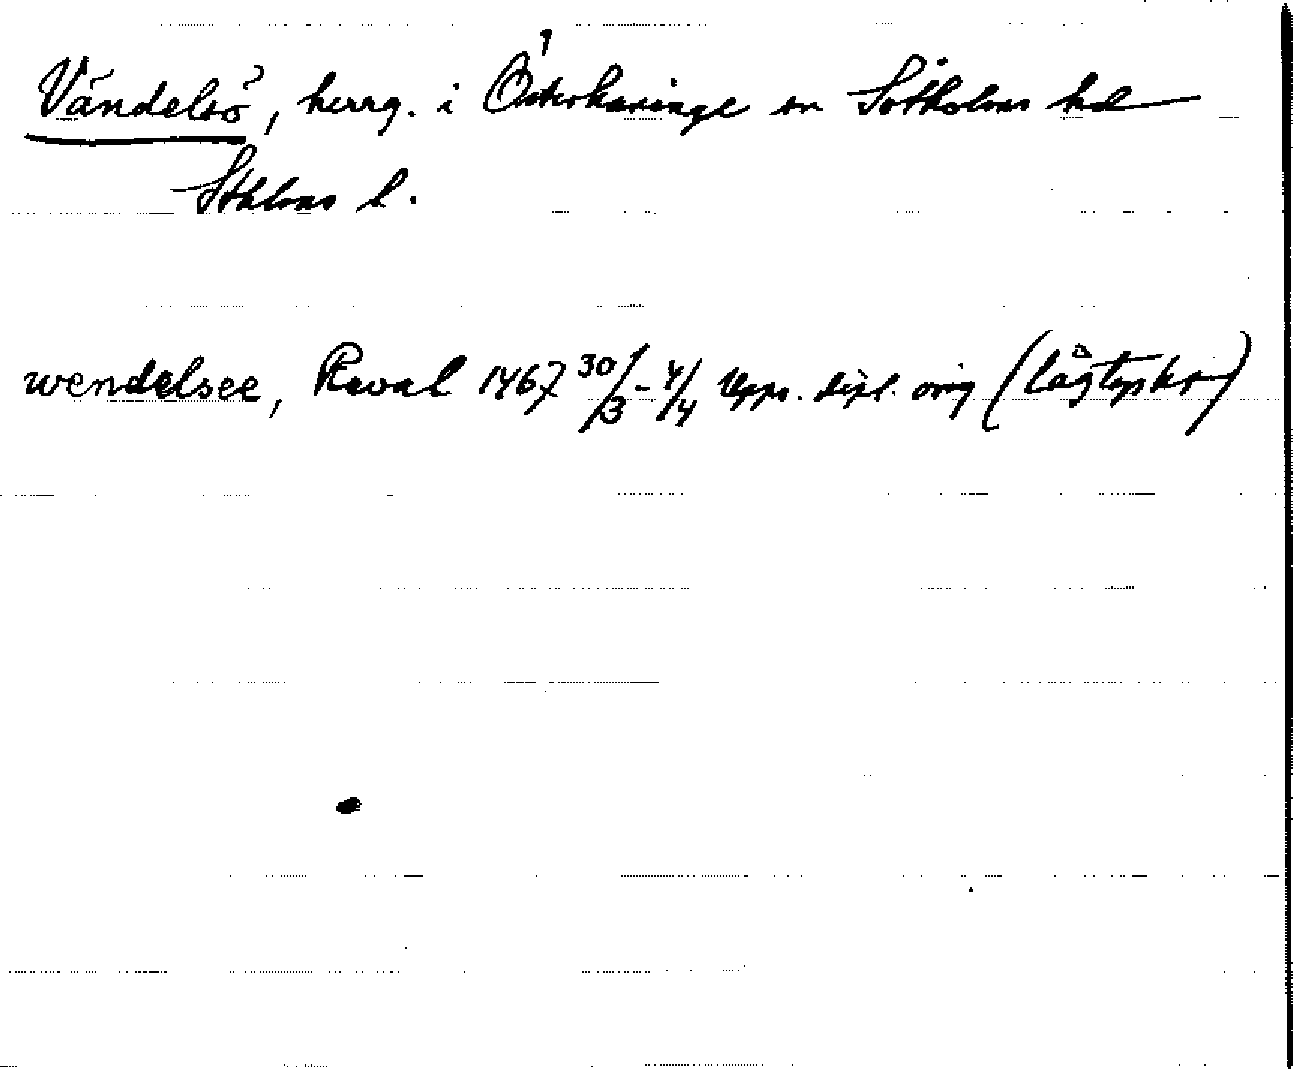 Vändelsö, herrg. i Österhaninge sn Sotholms hd
Sthlms l.
wendelsee, Reval 1467 30/3 - 4/4 Upps. dipl. orig (lågtyskt)